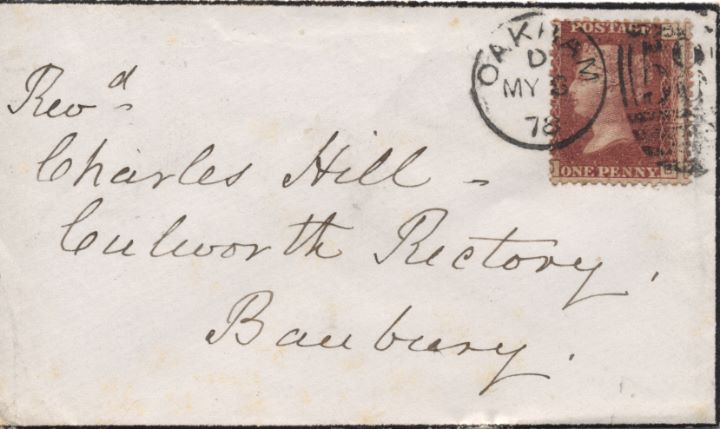 Revd
Charles Hill -
Culworth Rectory,
Banbury.
OAKHAM
D
MY 3
78
POSTAGE
ONE PENNY